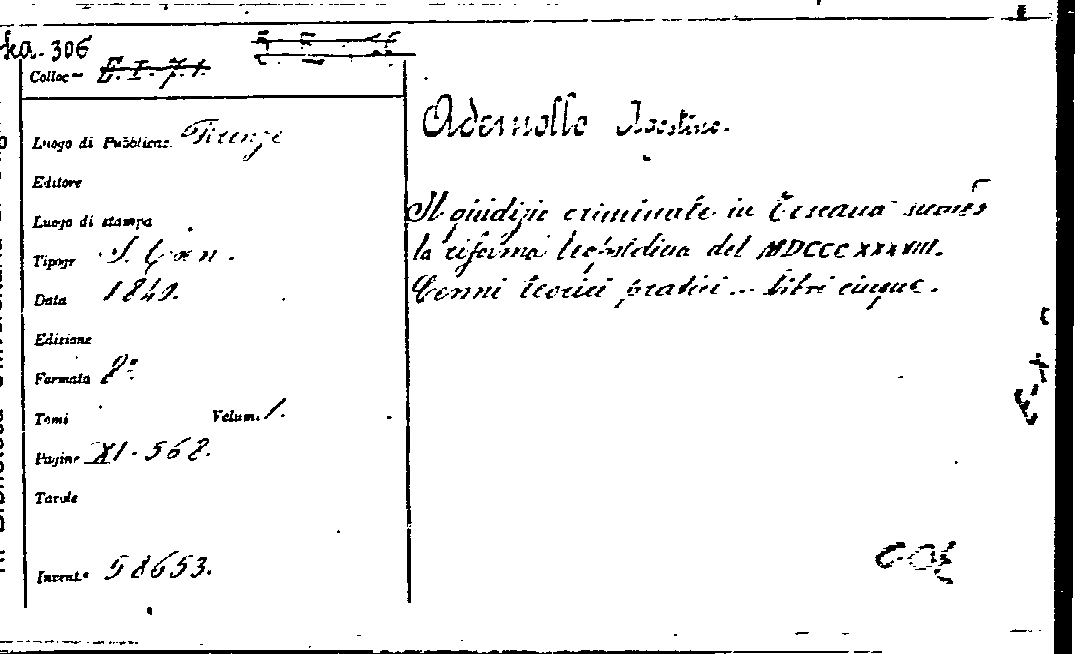 306
Colloc~ E.I.71.
Luogo di Pubblicaz. Firenze
Editore
Luogo di stampa
Tipogr
Data 1840.
Edizione
Formato 8º
Tomi Volum. 1.
Pagine XI-568.
Tavole
Invent.º 58653.
Ademollo Agostino.
Il giudizio criminale in Toscana
la riforma leopoldina del MDCCCXXXVIII.
Cenni teorici pratici... libri cinque.